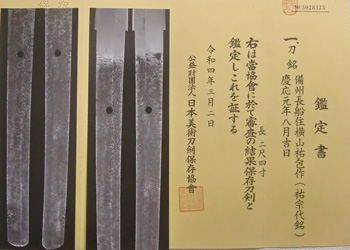 鑑定書
一、刀 銘 備州長船住横山祐包作（祐宗代銘）
慶応元年八月吉日
長 二尺四寸
右は當協會に於て審査の結果保存刀剣と
鑑定しこれを証する
令和四年三月二日
公益財團法人 日本美術刀剣保存協會
№ 3028325